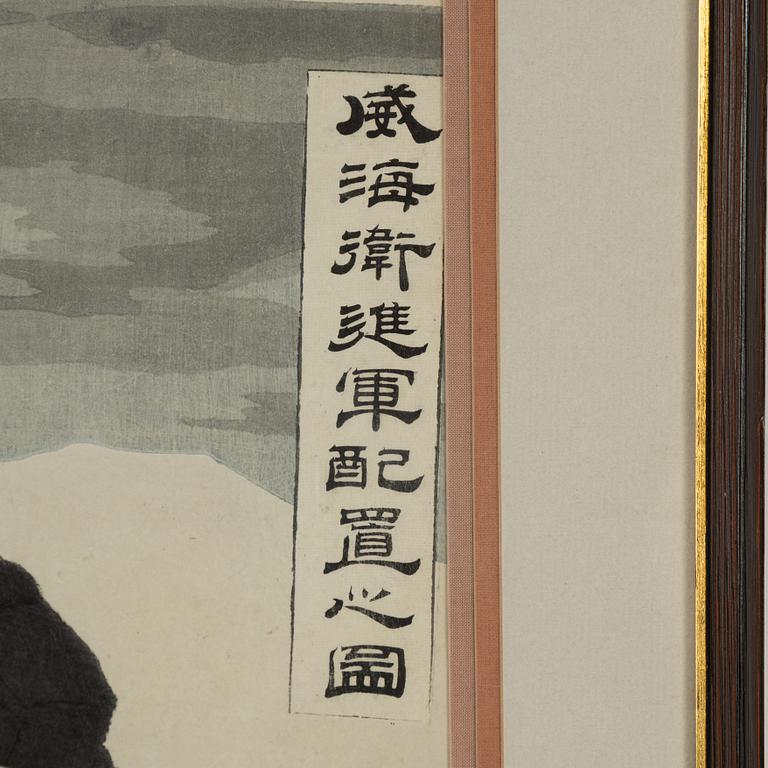 威海衛進軍配置之圖